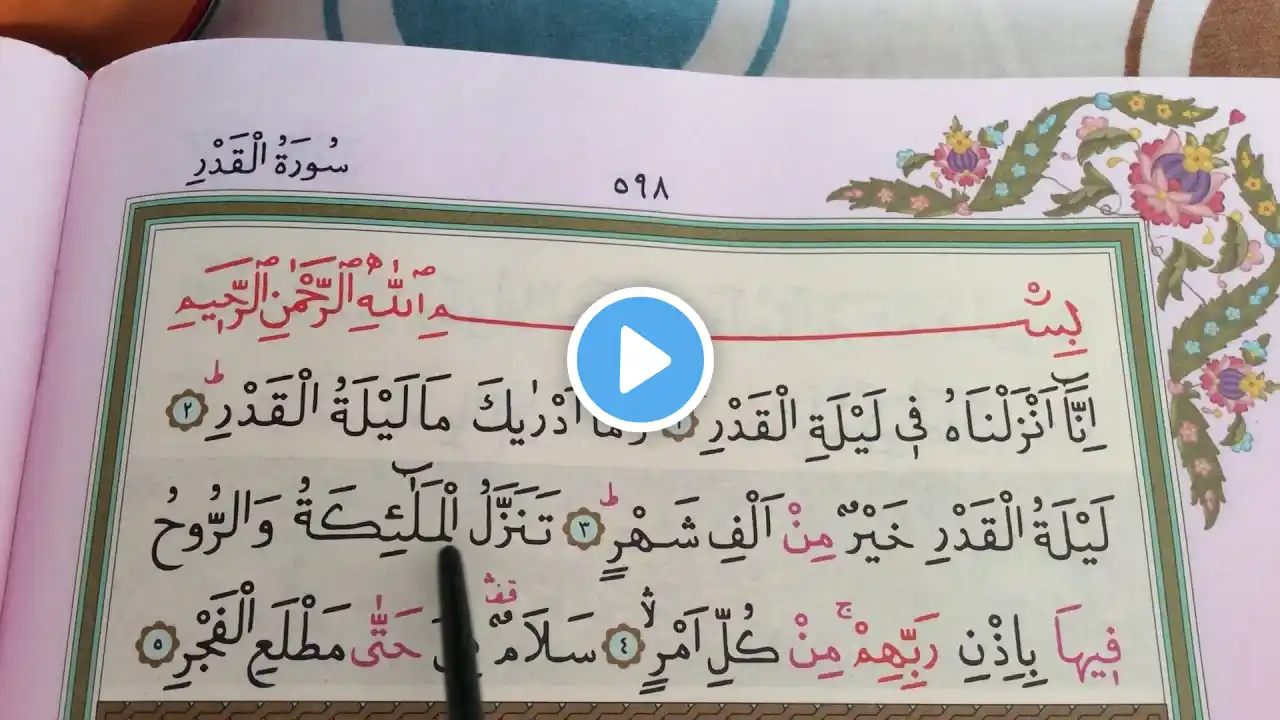 سُورَةُ الْقَدْرِ
٥٩٨
بِسْمِ اللّٰهِ الرَّحْمٰنِ الرَّحِيمِ
اِنَّٓا اَنْزَلْنَاهُ فٖى لَيْلَةِ الْقَدْرِ ١ اَدْرٰيكَ مَا لَيْلَةُ الْقَدْرِ ط ٢
لَيْلَةُ الْقَدْرِ خَيْرٌ مِنْ اَلْفِ شَهْرٍ ط ٣ تَنَزَّلُ الْمَلٰٓئِكَةُ وَالرُّوحُ
فٖيهَا بِاِذْنِ رَبِّهِمْ ج مِنْ كُلِّ اَمْرٍ ٤ سَلَامٌ قف حَتّٰى مَطْلَعِ الْفَجْرِ ٥